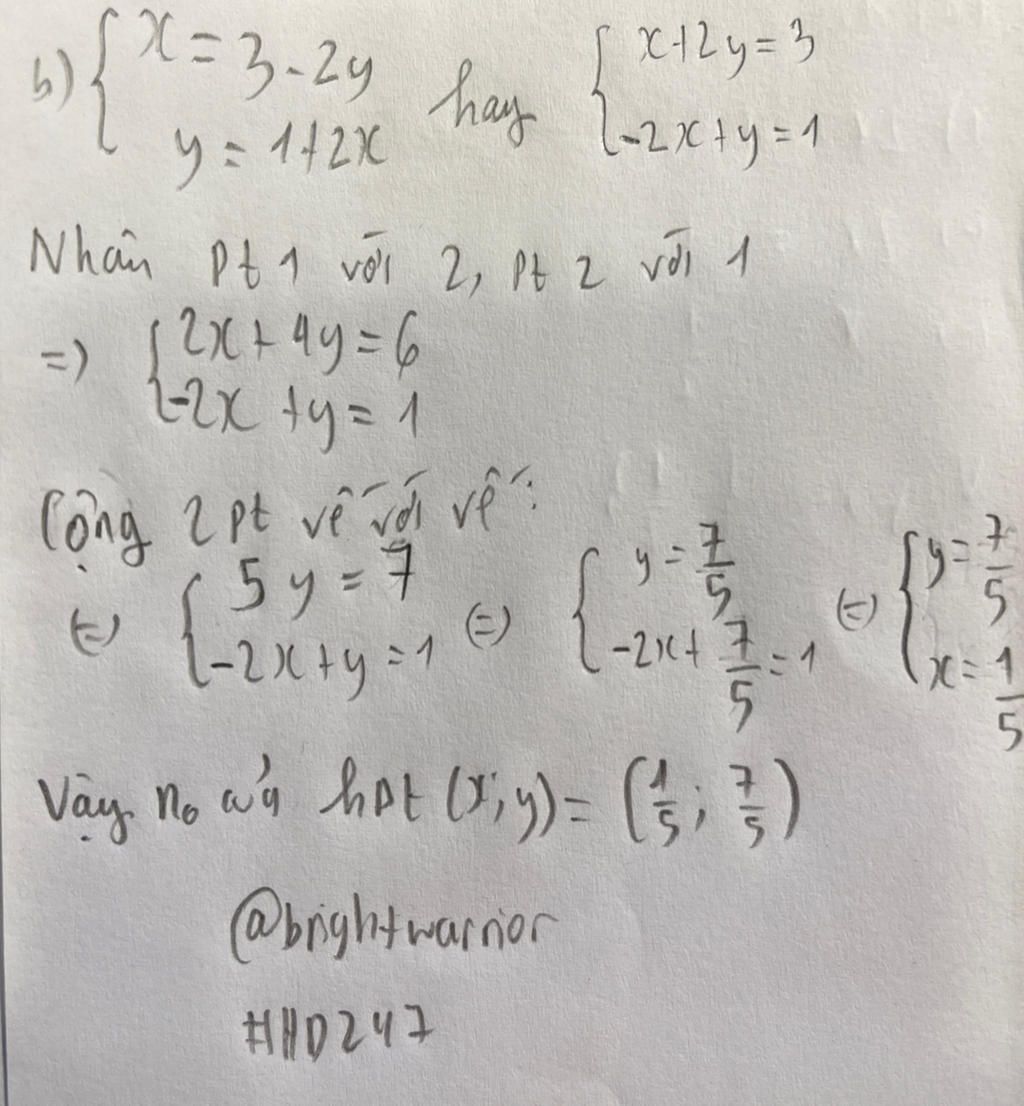 b) { x = 3 - 2y hay { x + 2y = 3
y = 1 + 2x -2x + y = 1
Nhân Pt 1 với 2, Pt 2 với 1
=) { 2x + 4y = 6
-2x + y = 1
Cộng 2 pt vế với vế:
(=) { 5y = 7 (=) { y = 7/5 (=) { y = 7/5
-2x + y = 1 -2x + 7/5 = 1 x = 1/5
Vậy no của hpt (x; y) = (1/5; 7/5)
@brightwarrior
#HD247